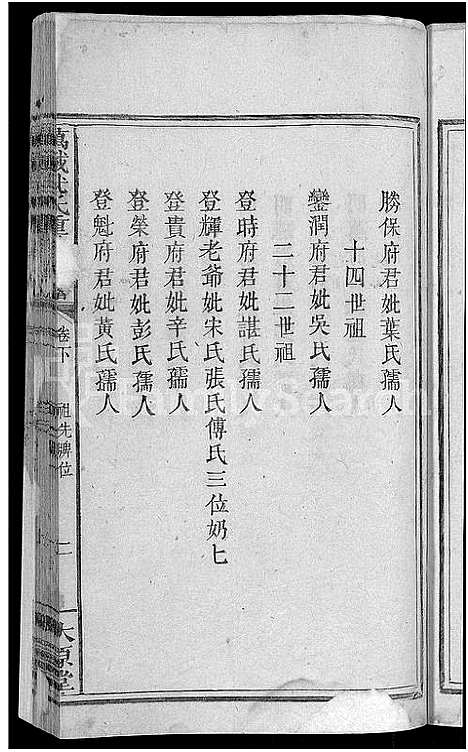 勝保府君妣葉氏孺人
十四世祖
鑾潤府君妣吳氏孺人
二十二世祖
登時府君妣諶氏孺人
登輝老爺妣宋氏張氏傅氏三位奶七
登貴府君妣辛氏孺人
登榮府君妣彭氏孺人
登魁府君妣黃氏孺人
萬載 氏重
卷下
祖先牌位
二
太原堂
FamilySearch